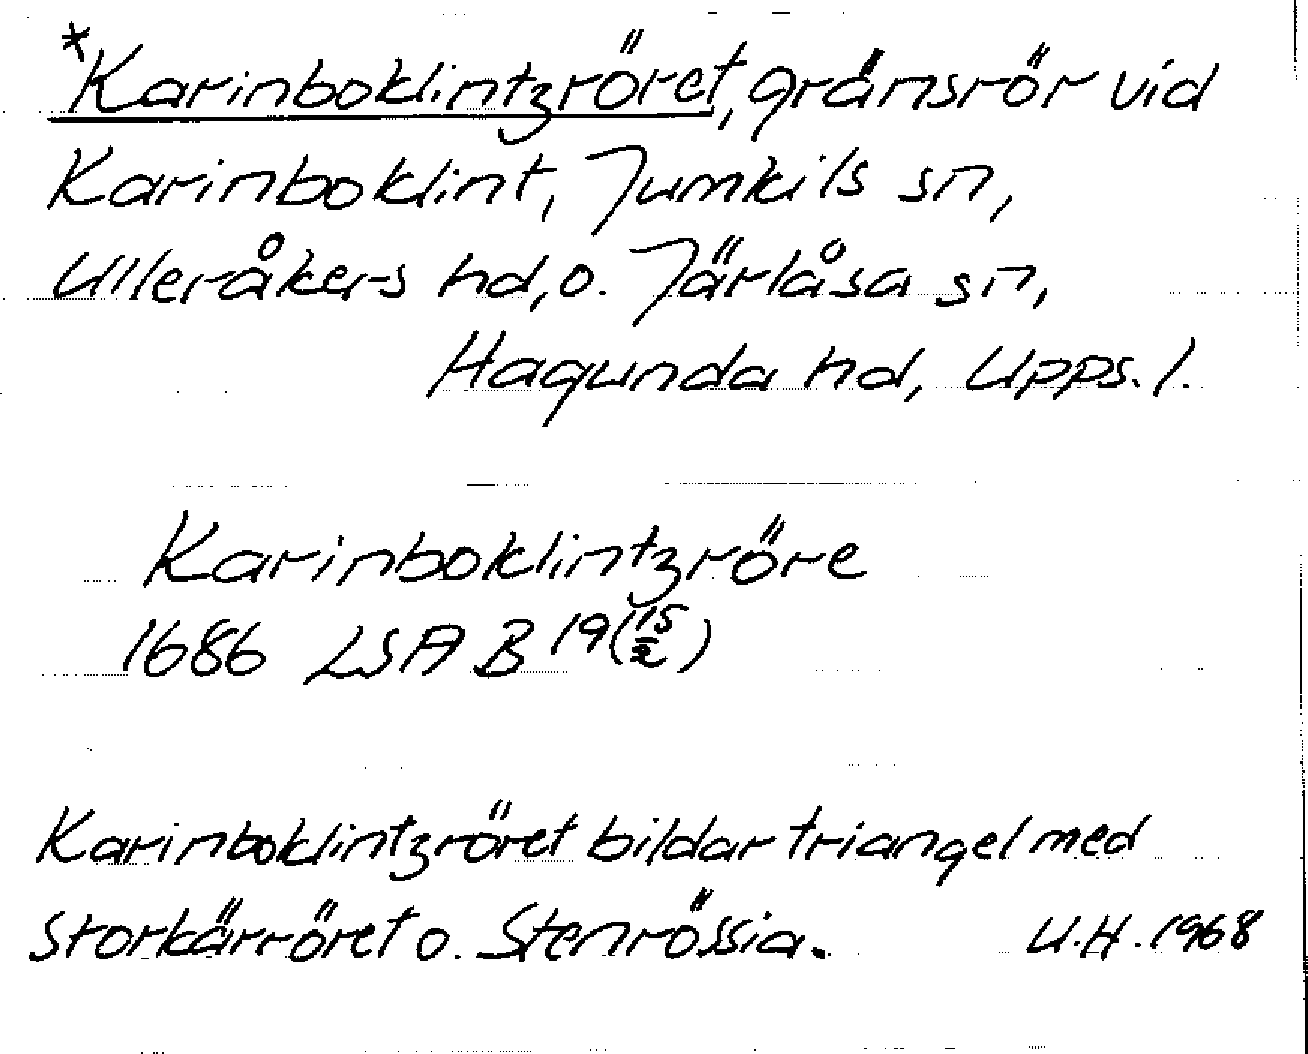 *Karinboklintzröret, gränsrör vid
Karinboklint, Jumkils sn,
Ulleråkers hd, o. Järlåsa sn,
Hagunda hd, Upps. l.
Karinboklintzröre
1686 LSA B 19 (15/2)
Karinboklintzröret bildar triangel med
Storkärröret o. Stenrössia.
U.H. 1968